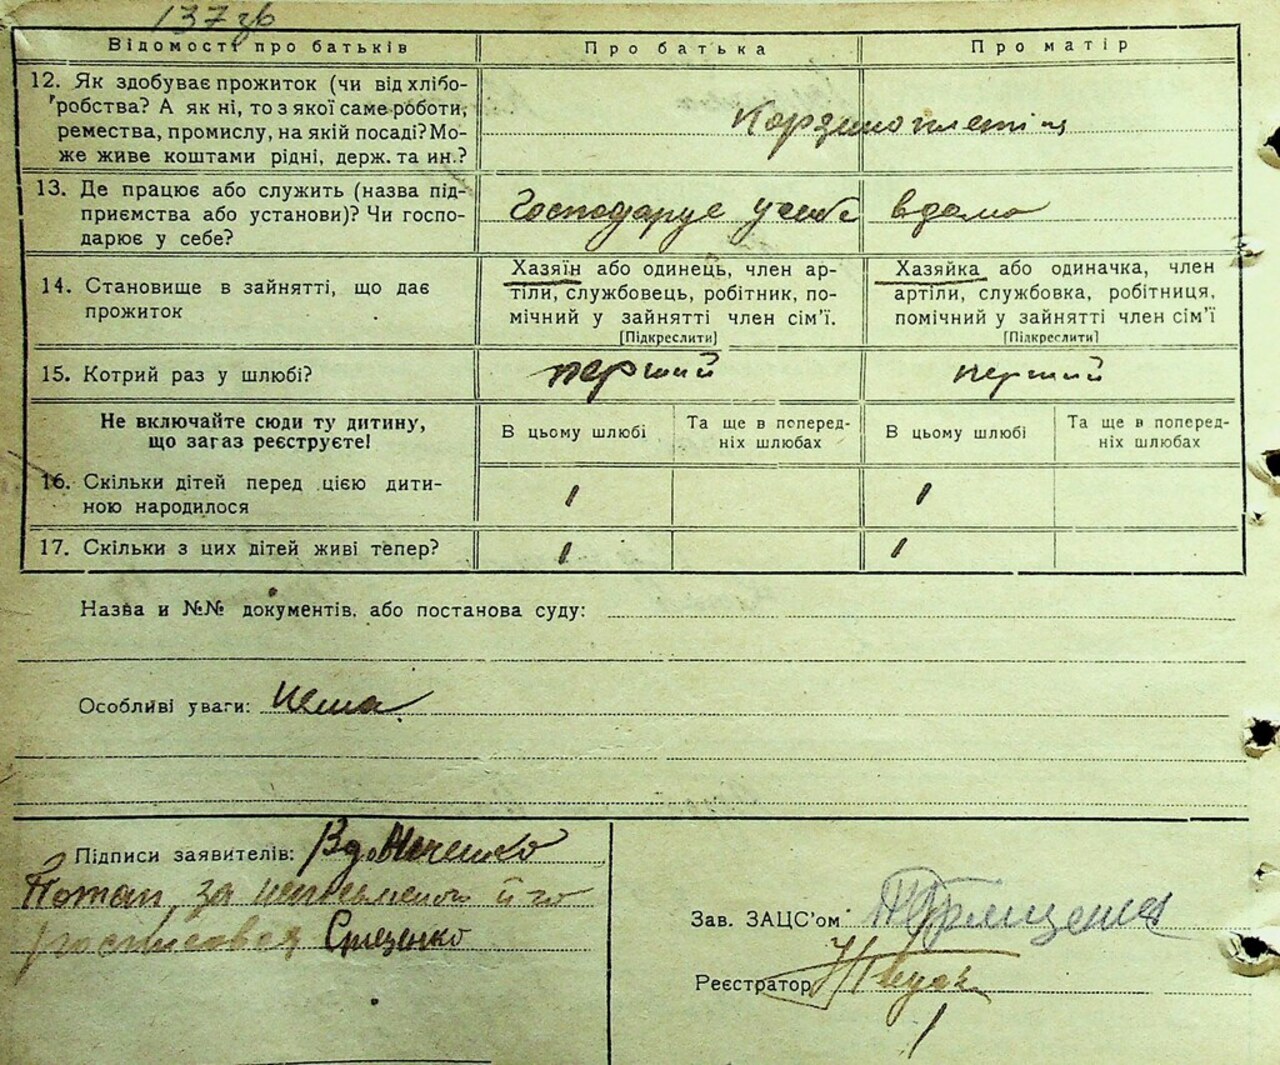 137 зв
Відомості про батьків
Про батька
Про матір
12. Як здобуває прожиток (чи від хлібо-
робства? А як ні, то з якої саме роботи,
ремества, промислу, на якій посаді? Мо-
же живе коштами рідні, держ. та ин.?
Корзиноплетіц
13. Де працює або служить (назва під-
приємства або установи)? Чи госпо-
дарює у себе?
Господарує у себе
вдома
14. Становище в зайнятті, що дає
прожиток
Хазяїн або одинець, член ар-
тіли, службовець, робітник, по-
мічний у зайнятті член сім'ї.
[Підкреслити]
Хазяйка або одиначка, член
артіли, службовка, робітниця,
помічний у зайнятті член сім'ї
[Підкреслити]
15. Котрий раз у шлюбі?
перший
перший
Не включайте сюди ту дитину,
що загаз реєструєте!
В цьому шлюбі
Та ще в поперед-
ніх шлюбах
В цьому шлюбі
Та ще в поперед-
ніх шлюбах
16. Скільки дітей перед цією дити-
ною народилося
1
1
17. Скільки з цих дітей живі тепер?
1
1
Назва и №№ документів, або постанова суду:
Особливі уваги: нема
Підписи заявителів: Вдовиченко
Потап, за неписьменого його
росписався Грищенко
Зав. ЗАЦС'ом
Реєстратор